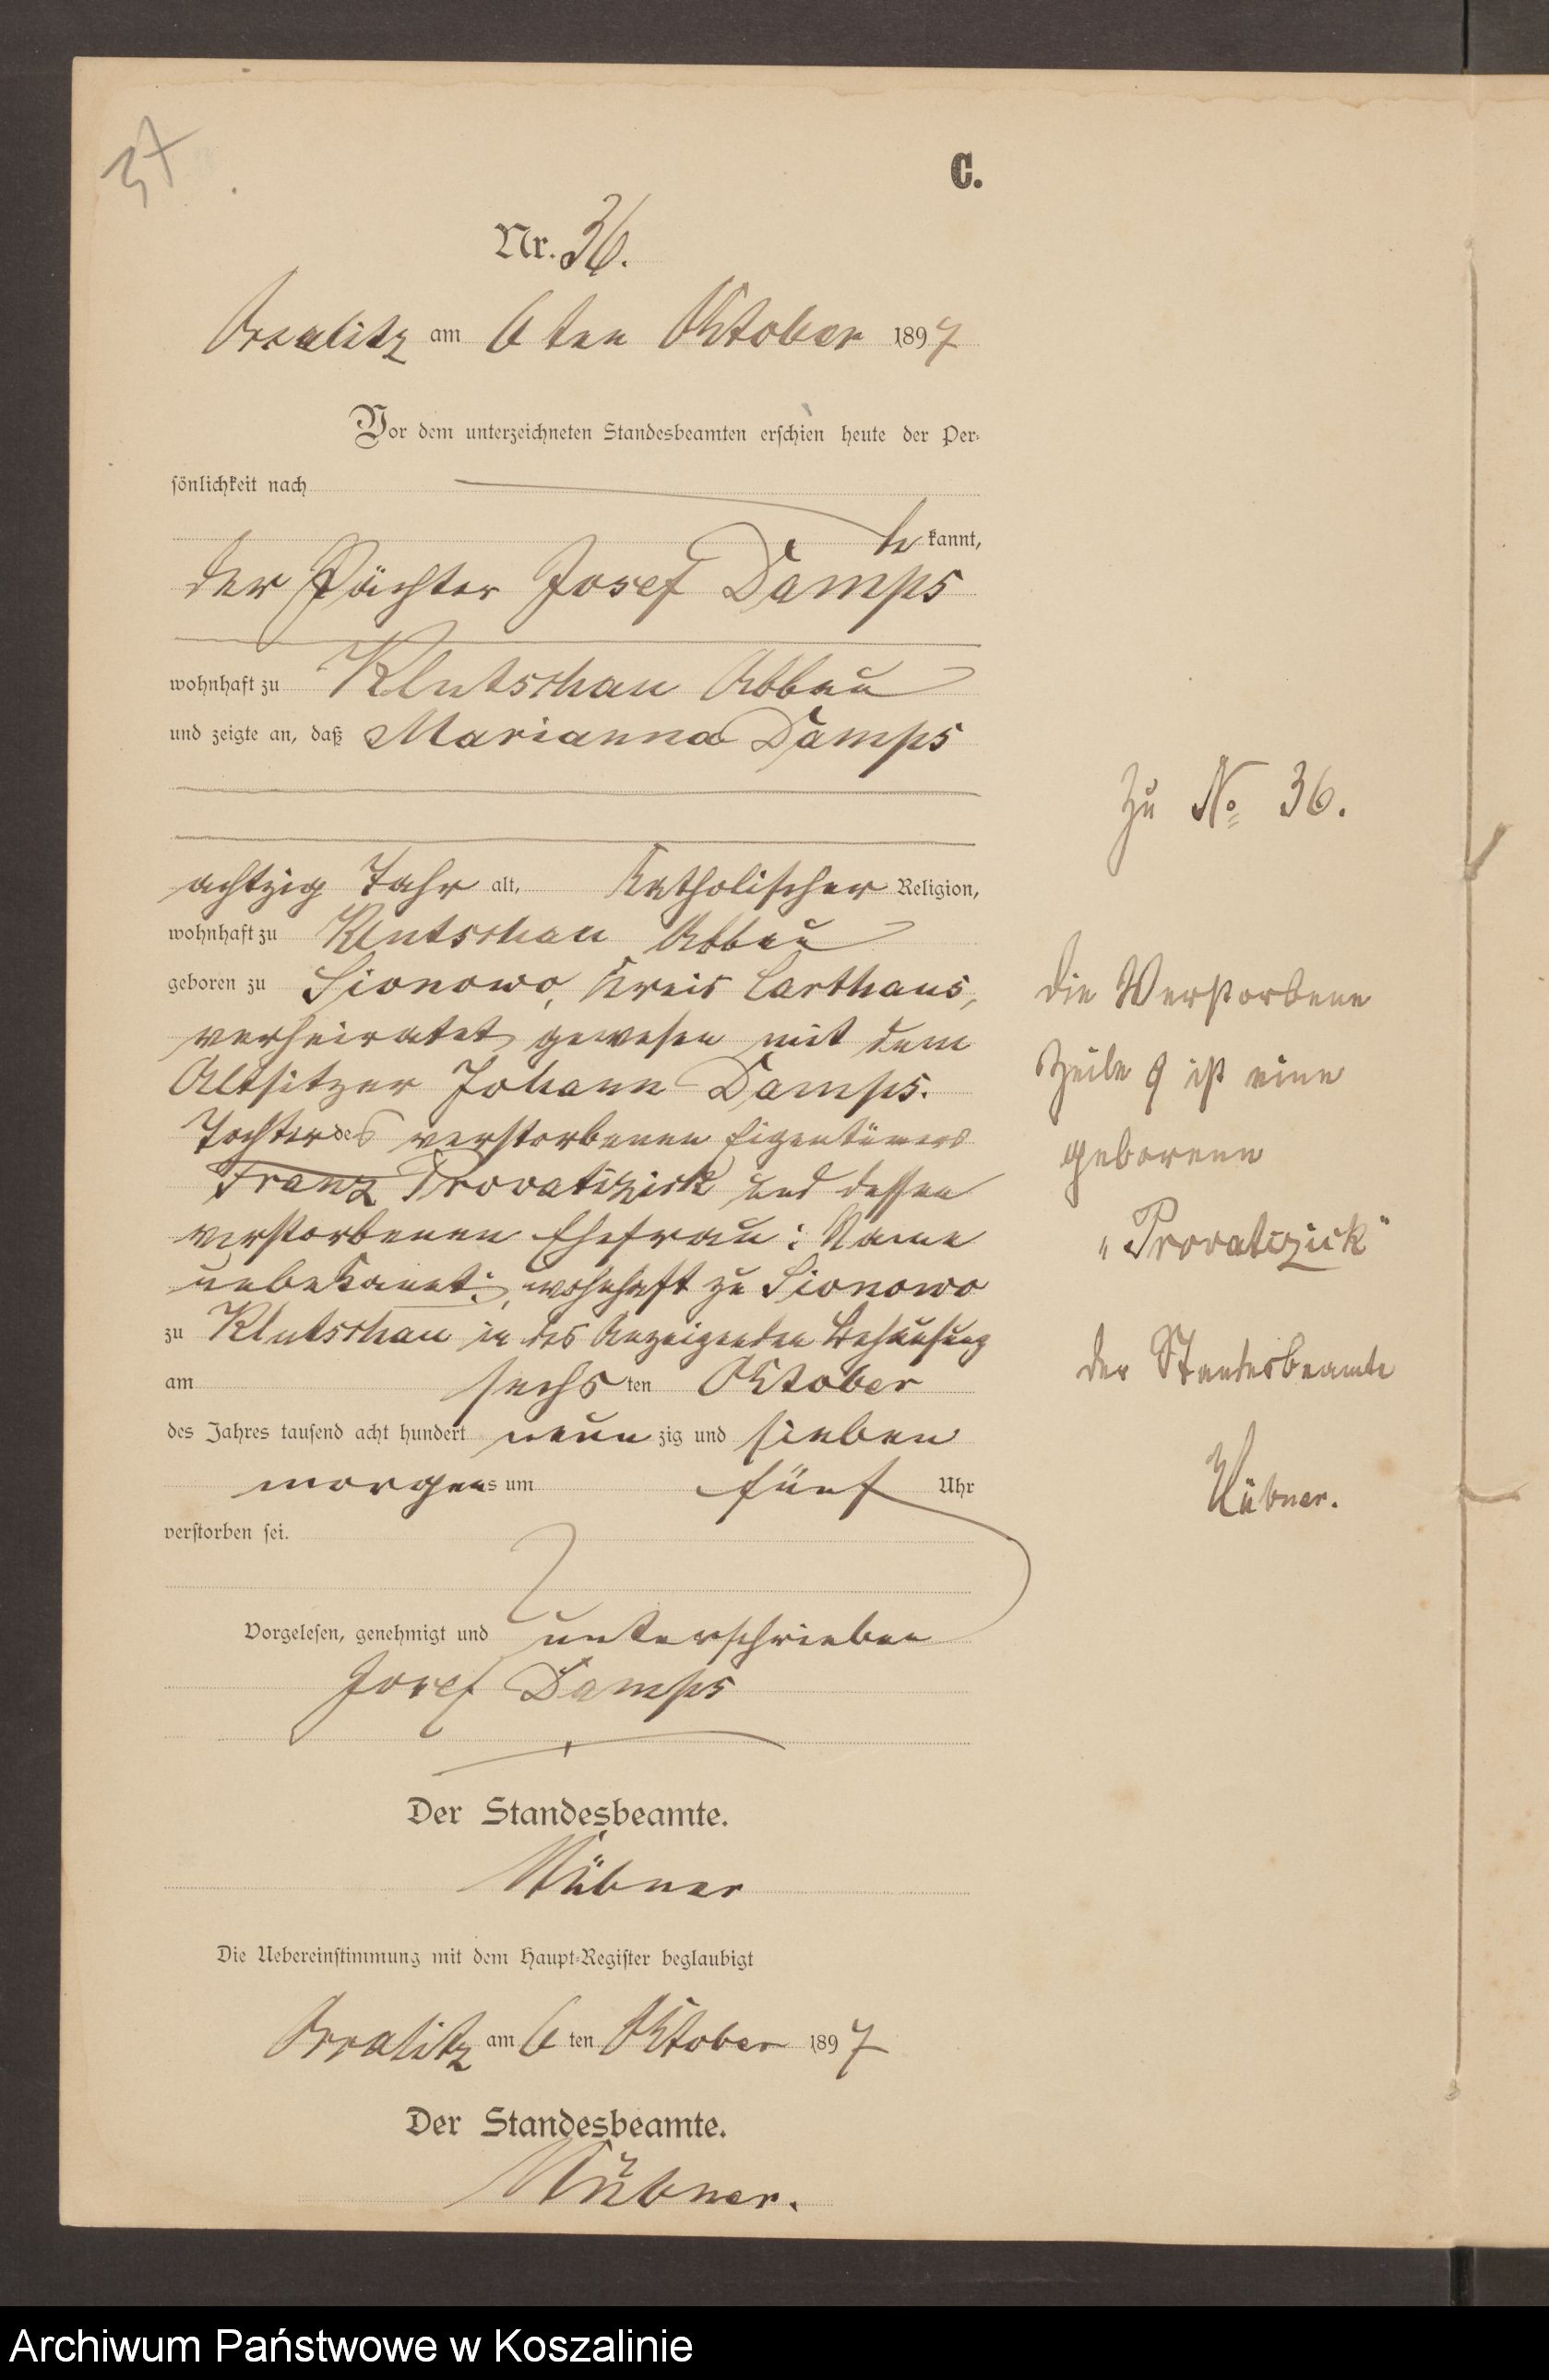 37.
C.
Nr. 36.
am 6ten Oktober 1897
Vor dem unterzeichneten Standesbeamten erschien heute der Per-
sönlichkeit nach
be kannt,
der Pächter Josef Damps
wohnhaft zu Klutschau Abbau
und zeigte an, daß Marianna Damps
achtzig Jahr alt, katholischer Religion,
wohnhaft zu Klutschau Abbau
geboren zu Sianowo, Kreis Carthaus,
verheiratet gewesen mit dem
Altsitzer Johann Damps.
Tochter des verstorbenen Eigentümers
Franz und dessen
verstorbenen Ehefrau: Name
unbekannt:, wohnhaft zu Sianowo
zu Klutschau in des Anzeigenden Behausung
am sechs ten Oktober
des Jahres tausend acht hundert neun zig und sieben
morgens um fünf Uhr
verstorben sei.
Vorgelesen, genehmigt und unterschrieben
Josef Damps
Der Standesbeamte.
Hübner
Die Uebereinstimmung mit dem Haupt-Register beglaubigt
am 6 ten Oktober 1897
Der Standesbeamte.
Hübner.
Zu No 36.
Die Verstorbene
Zeile 9 ist eine
geborene
der Standesbeamte
Hübner.
Archiwum Państwowe w Koszalinie